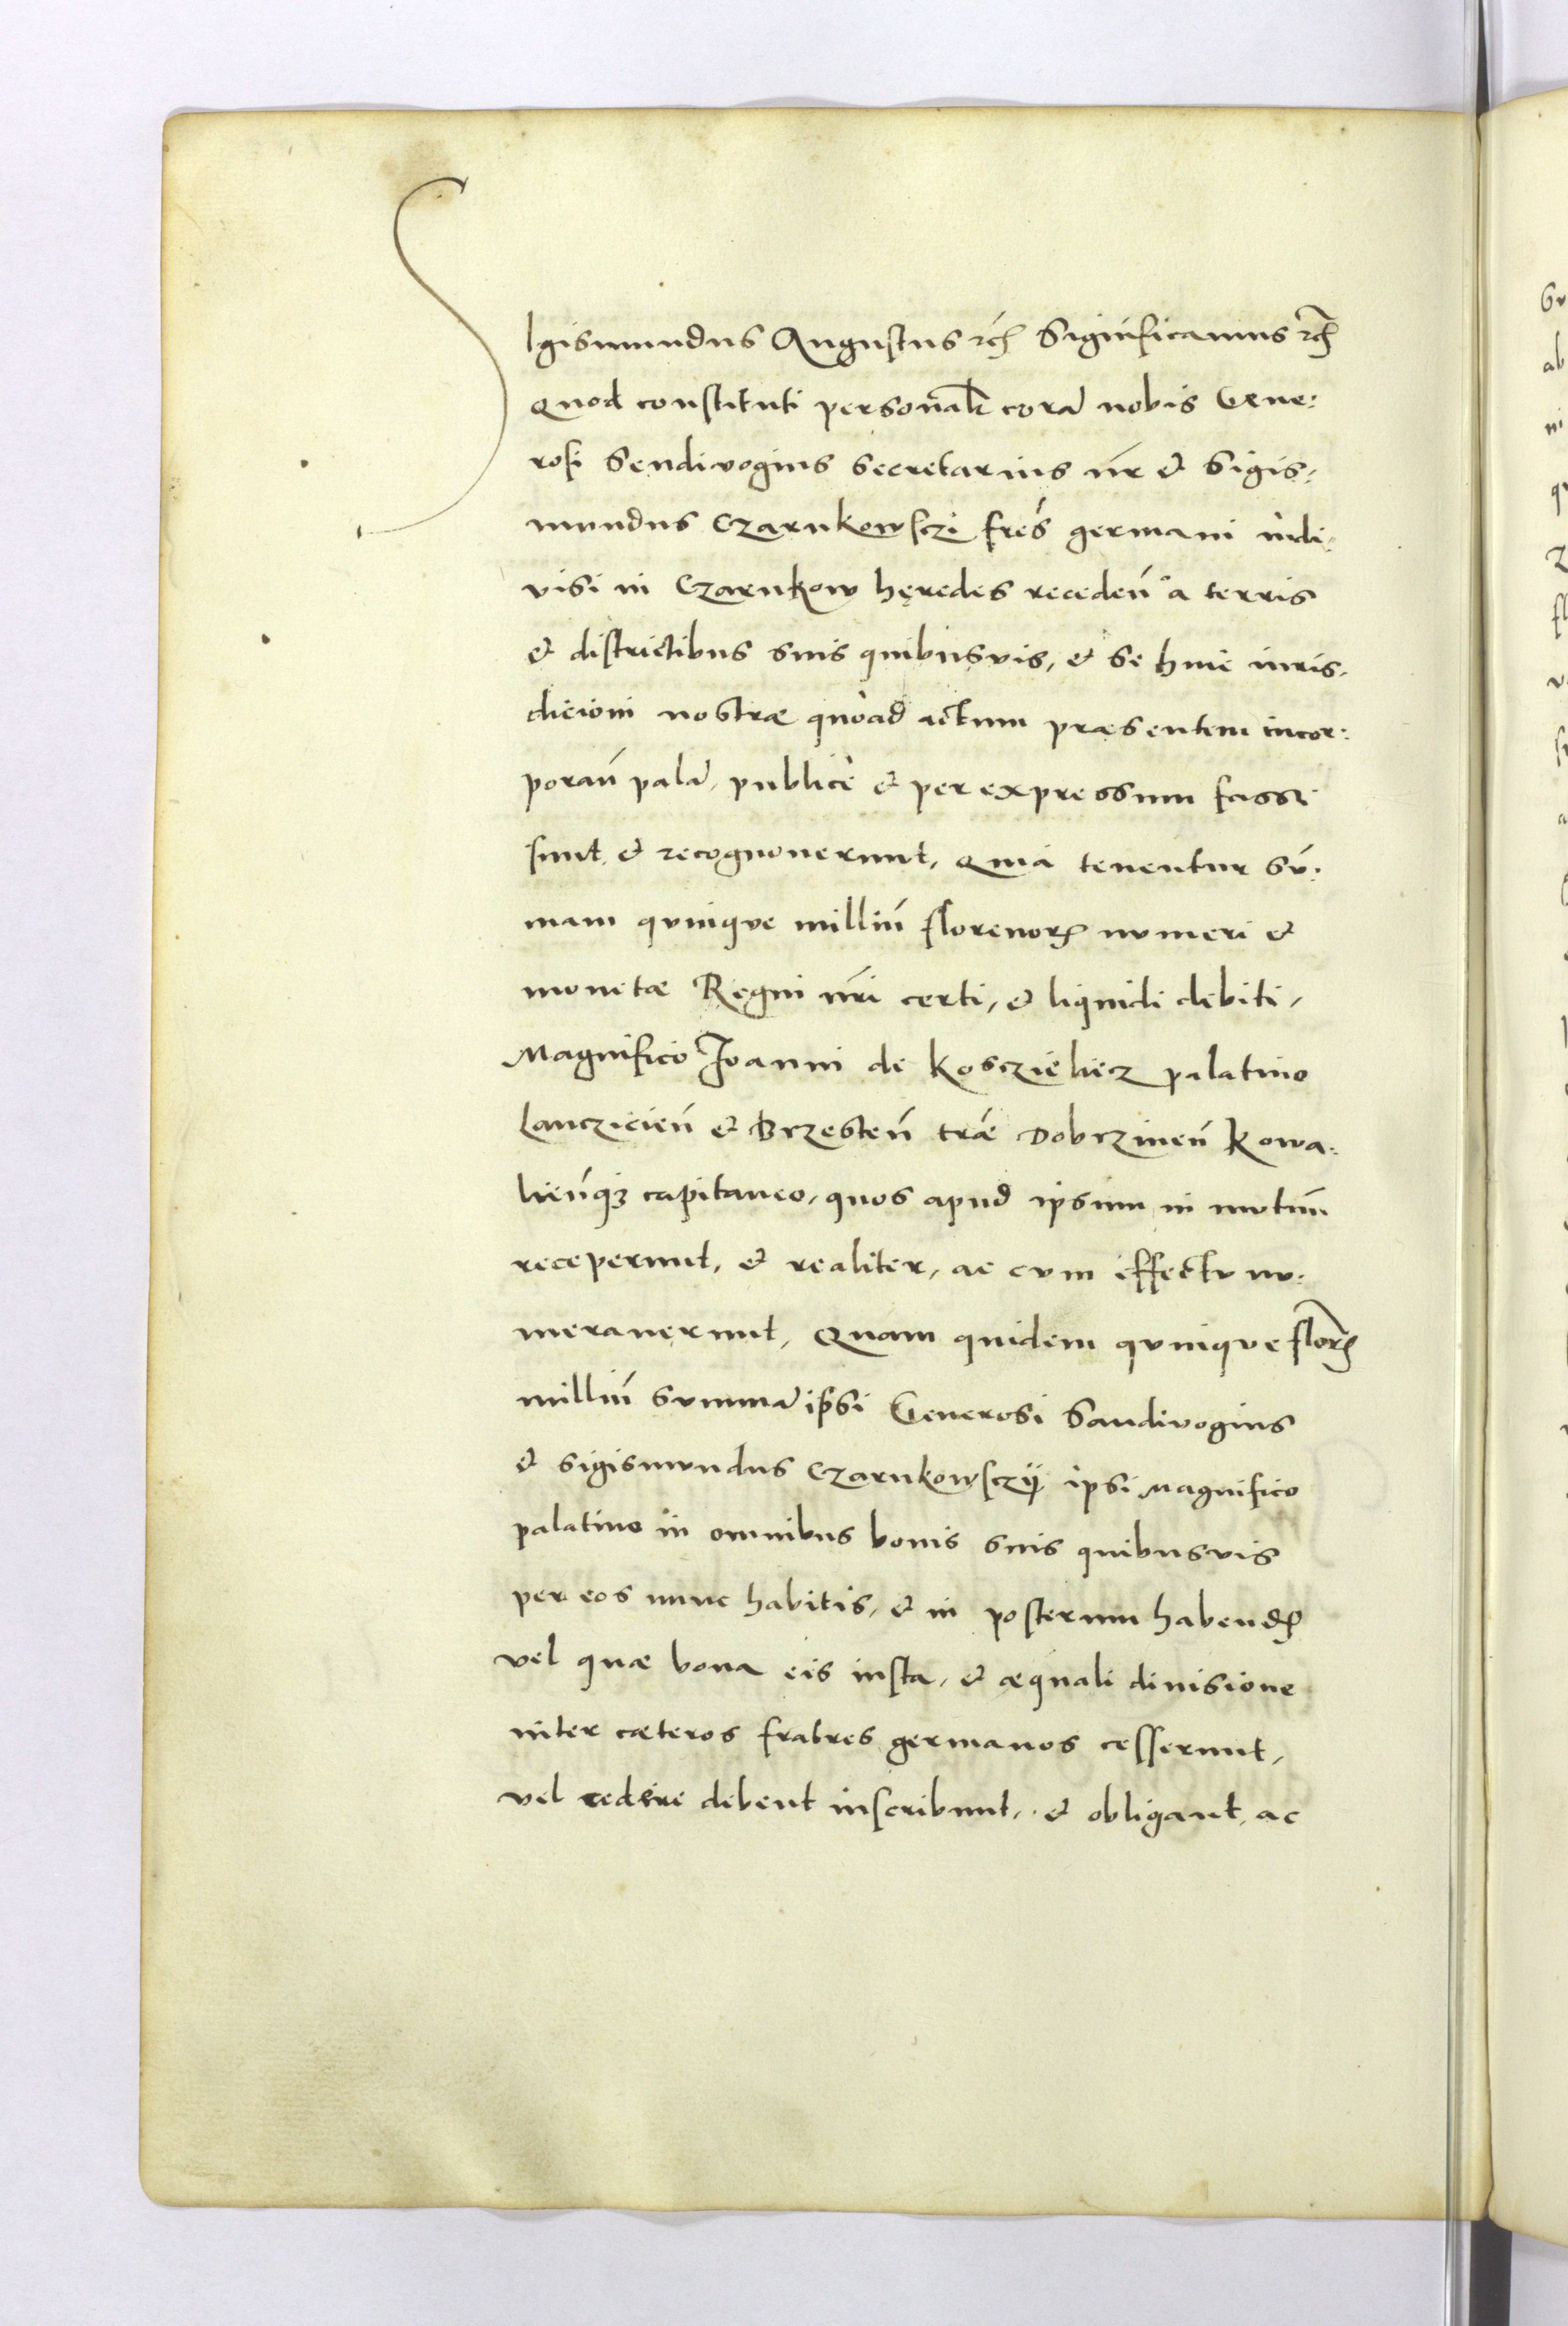 SIgismundus Augustus rc̃ Significamus rc̃
Quod constituti personalr̃ corã nobis Gene:
rosi Sendivogius Secretarius nr̃ & Sigis,
mundus Czarnkowsczi frẽs germani indi,
visi in Czarnkow hęredes recedeñ a terris
& districtibus suis quibusvis, & se huic iuris,
dicioni nostræ quoad actum præsentem incor:
porañ palã, publice & per expressum fassi
sunt, & recognouerunt, Quia tenentur Sũ:
mam quinque milliũ florenorꝝ numeri &
monetæ Regni nr̃i certi, & liquidi debiti,
Magnifico Joanni de Kosczieliecz palatino
Lancziciеñ & Brzesteñ træ̃ Dobrzineñ Kowa:
lieñqꝫ capitaneo, quos apud ipsum in mutuũ
receperunt, & realiter, ac cum effectu nu:
merauerunt, Quam quidem quinque florꝝ
milliũ summã ipsi Generosi Sandivogius
& Sigismundus Czarnkowsczÿ ipsi Magnifico
palatino in omnibus bonis suis quibusvis
per eos nunc habitis, & in posterum habendꝝ
vel quæ bona eis iusta, & æquali diuisione
inter cæteros fratres germanos cesserunt,
vel cedere debent inscribunt, & obligant, ac